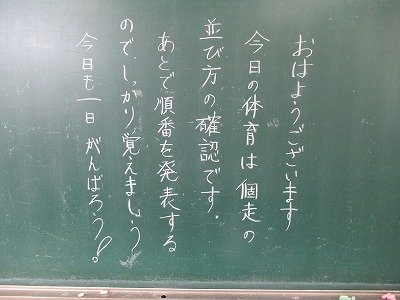 おはようございます
今日の体育は個走の
並び方の確認です.
あとで順番を発表する
ので.しっかり覚えましょう
今日も一日がんばろう!